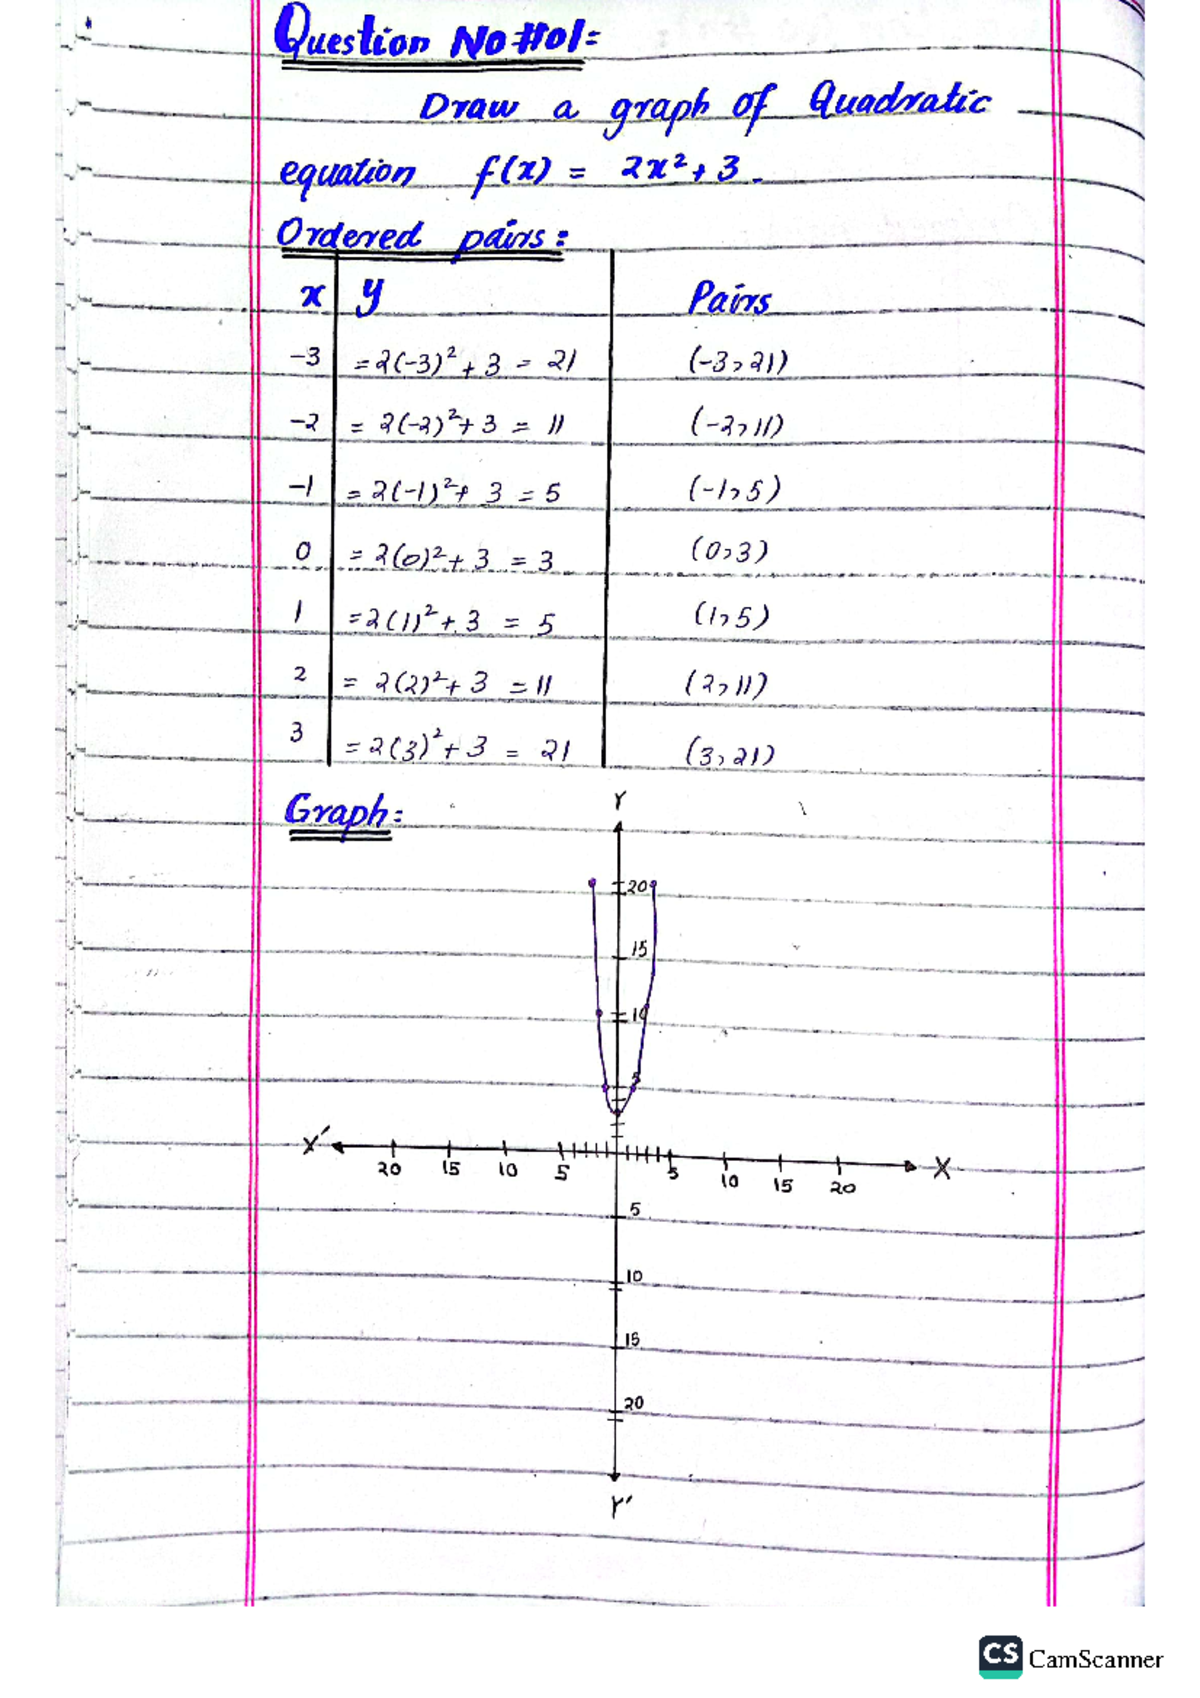 Question No#01:
Draw a graph of Quadratic
equation f(x) = 2x² + 3.
Ordered pairs:
x y Pairs
-3 = 2(-3)² + 3 = 21 (-3, 21)
-2 = 2(-2)² + 3 = 11 (-2, 11)
-1 = 2(-1)² + 3 = 5 (-1, 5)
0 = 2(0)² + 3 = 3 (0, 3)
1 = 2(1)² + 3 = 5 (1, 5)
2 = 2(2)² + 3 = 11 (2, 11)
3 = 2(3)² + 3 = 21 (3, 21)
Graph:
Y
20
15
10
5
X' X
20 15 10 5 5 10 15 20
5
10
15
20
Y'
CS CamScanner